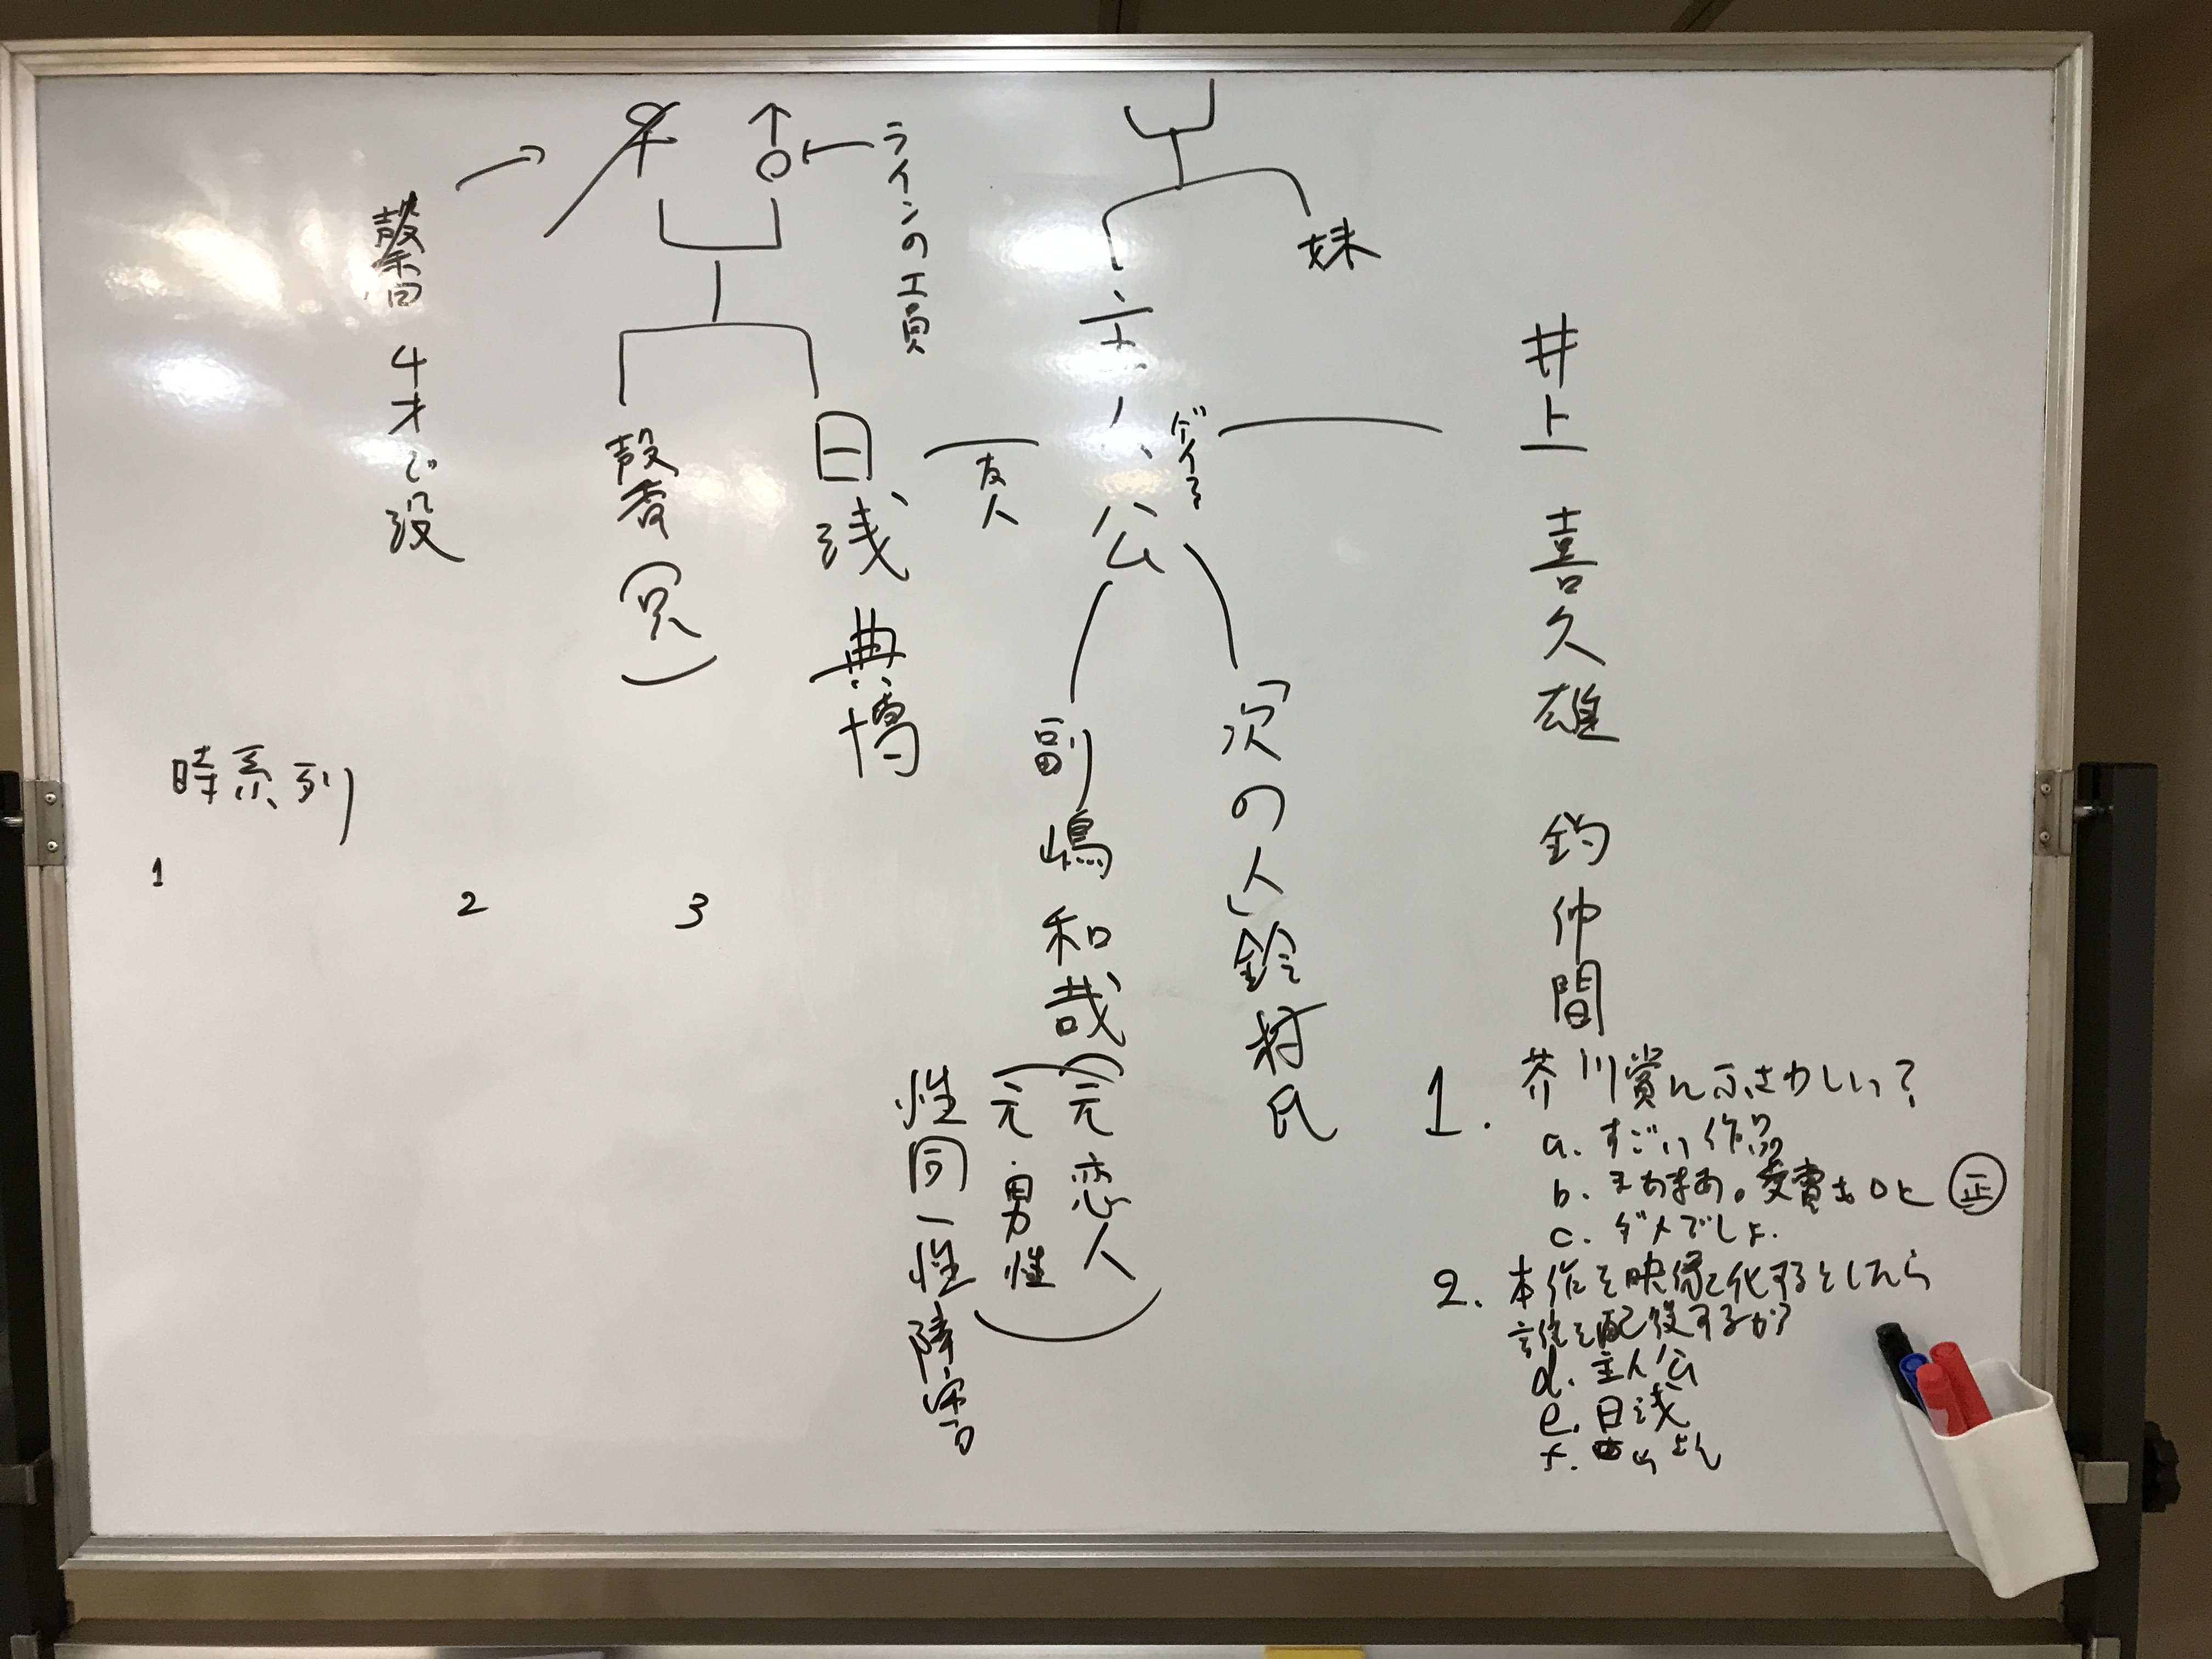 妹
井上 喜久雄 釣仲間
主人公
友人
「次の人」鈴村氏
副嶋和哉
(元恋人
元・男性)
性同一性障害
ラインの工員
日浅 典博
馨(兄)
4才で没
時系列
1
2
3
1. 芥川賞にふさわしい?
a. すごい作品
b. まあまあ。受賞も 正
c. ダメでしょ.
2. 本作を映像化するとしたら
誰を配役するか?
d. 主人公
e. 日浅
f.